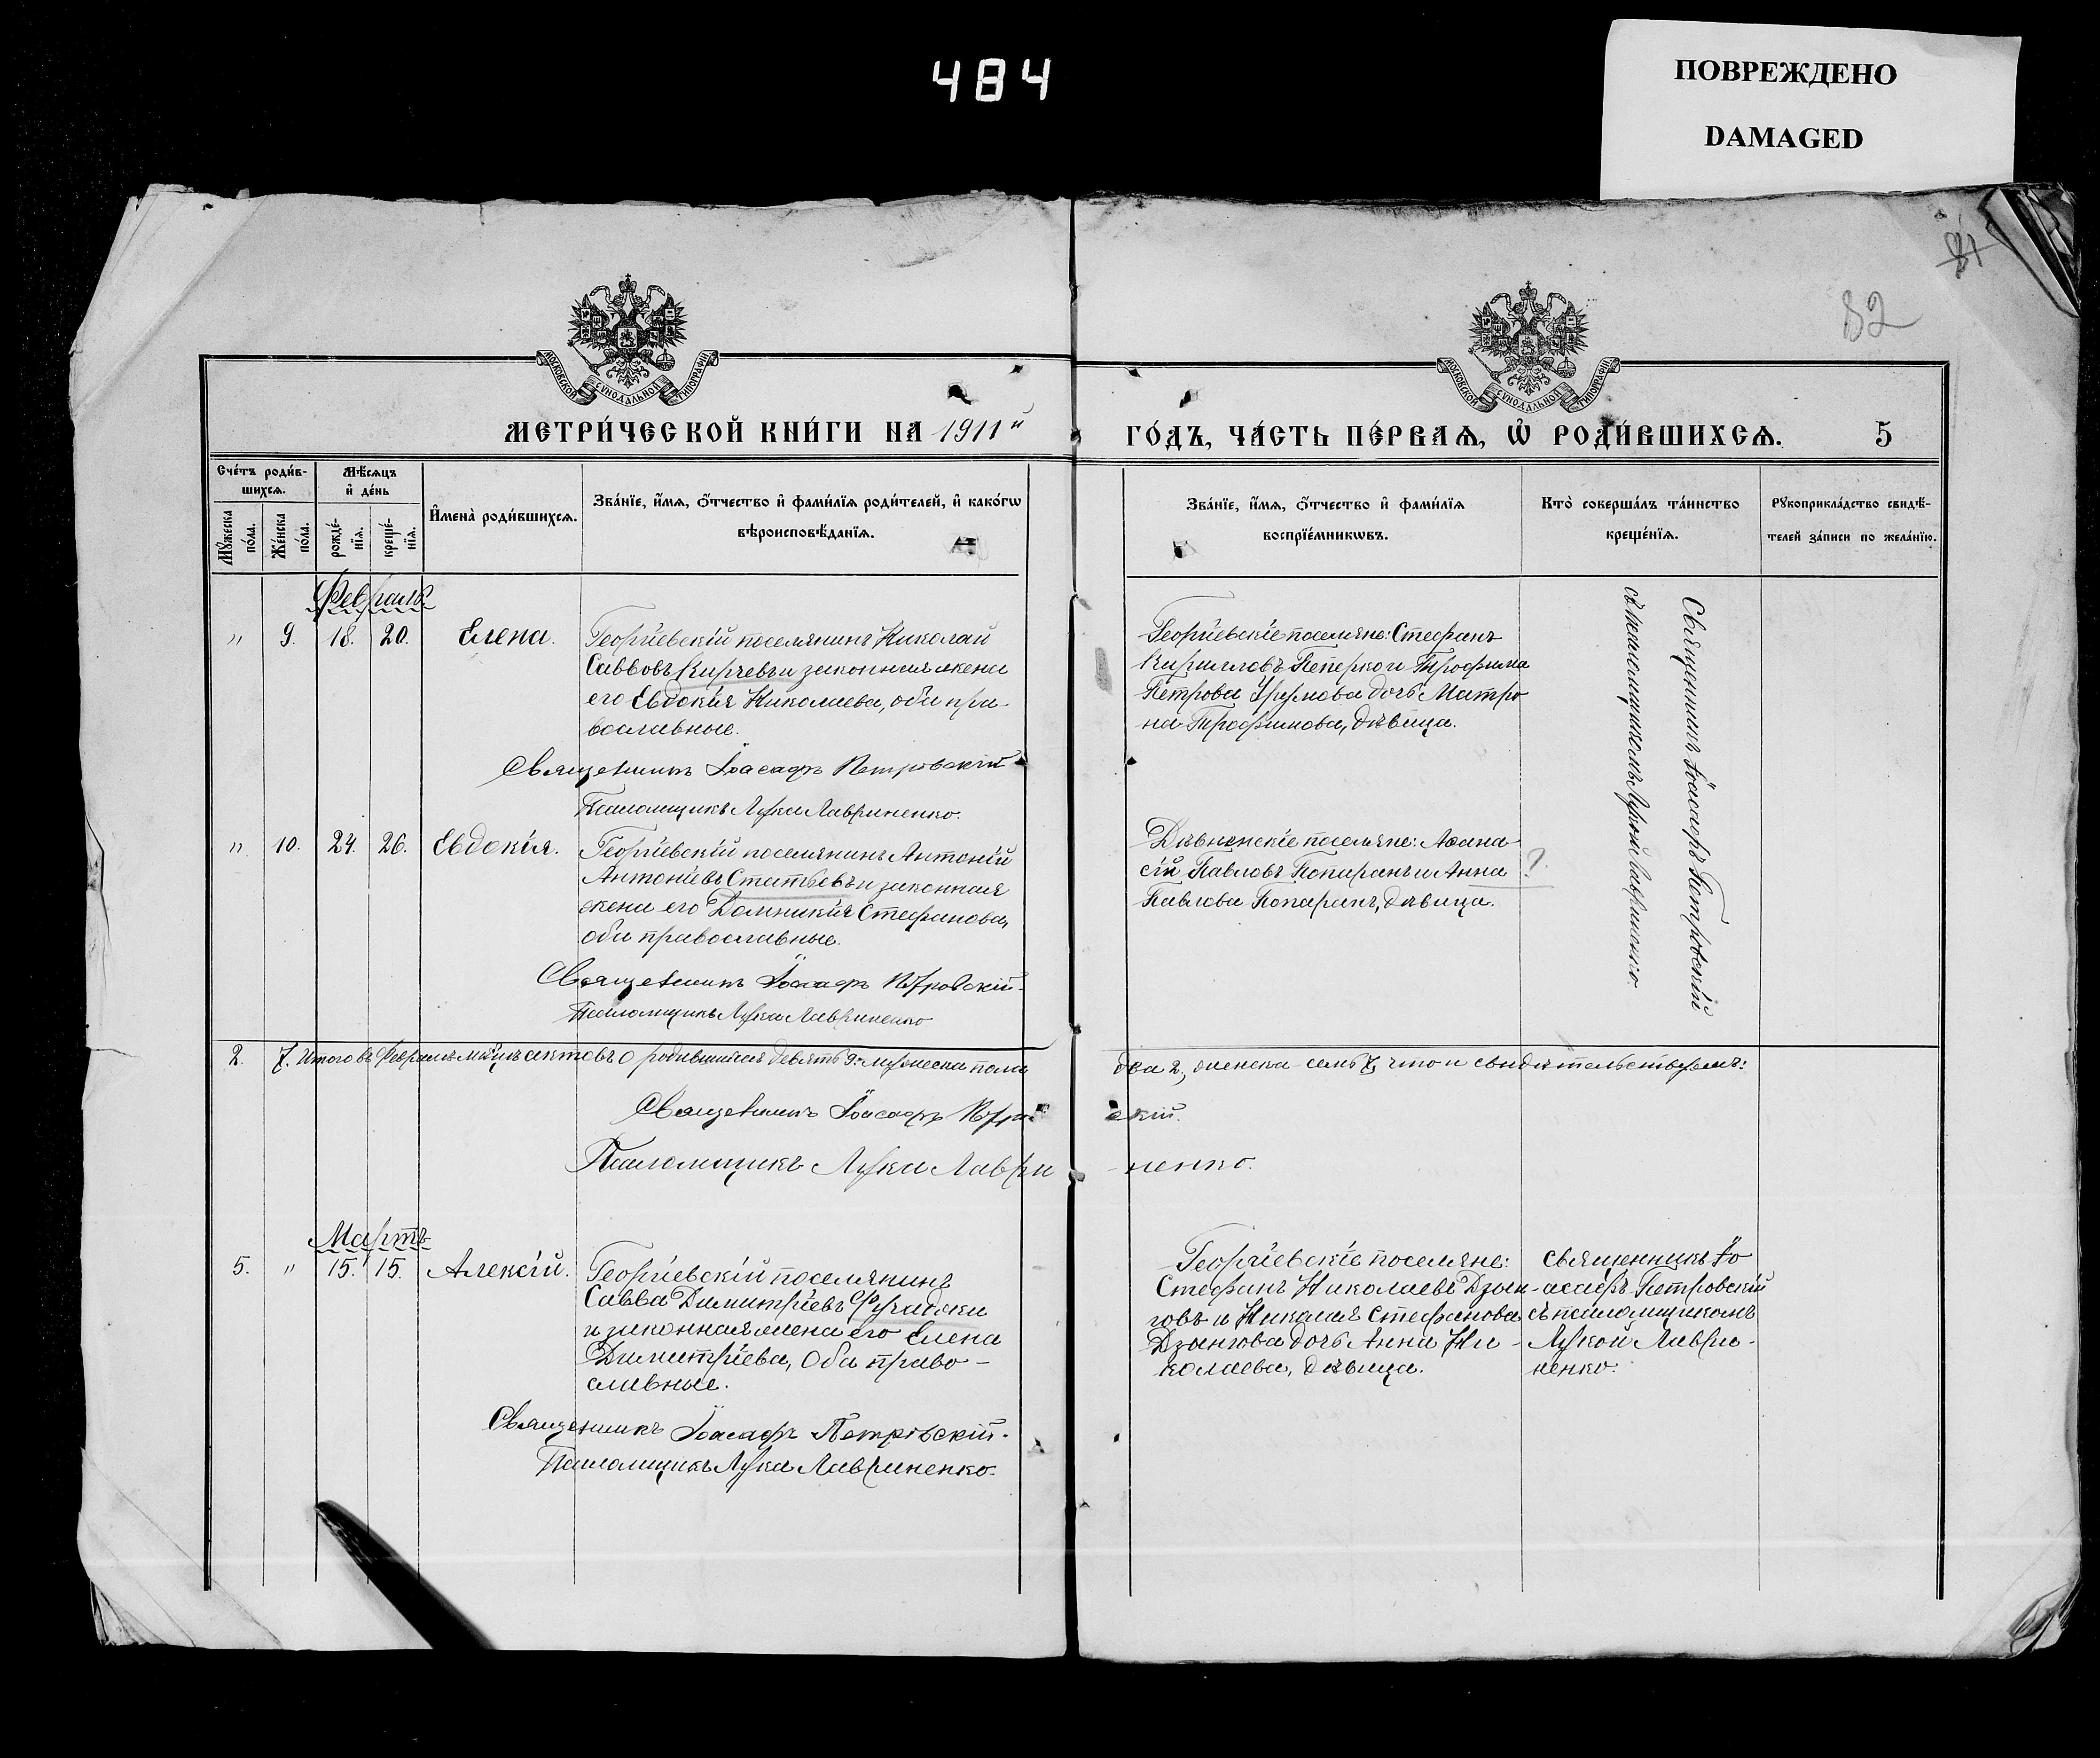 484
ПОВРЕЖДЕНО
DAMAGED
81
82
МОСКОВСКОЙ СУНОДАЛЬНОЙ ТИПОГРАФІИ
МОСКОВСКОЙ СУНОДАЛЬНОЙ ТИПОГРАФІИ
МЕТРИ́ЧЕСКОЙ КНИ́ГИ НА 1911й
ГО́ДЪ, ЧА́СТЬ ПЕ́РВАѦ, Ѡ҆ РОДИ́ВШИХСѦ.
5
Сче́тъ роди́в-
шихсѧ.
Мꙋ́жеска
по́ла.
Же́нска
по́ла.
Мѣ́сѧцъ
и҆ де́нь
рожде́-
нїѧ.
креще́-
нїѧ.
И҆мена̀ роди́вшихсѧ.
Зва́нїе, и҆́мѧ, ѻ҆́тчество и҆ фами́лїѧ роди́телей, и҆ како́гѡ
вѣроисповѣ́данїѧ.
Зва́нїе, и҆́мѧ, ѻ҆́тчество и҆ фами́лїѧ
воспрїе́мникѡвъ.
Кто̀ соверша́лъ та́инство
креще́нїѧ.
Рꙋкоприкла́дство свидѣ́-
телей за́писи по жела́нїю.
Февраль
" 9. 18. 20. Елена.
Георгіевскій поселянинъ Николай
Саввовъ Кирчевъ и законная жена
его Евдокія Николаева, оба пра-
вославные.
Священникъ Іоасафъ Петровскій
Псаломщикъ Лука Лавриненко.
Георгіевскіе поселяне: Стефанъ
Кирилловъ Пеперко и Трофима
Петрова Урумова дочь Матро
на Трофимова, дѣвица.
Священникъ Іоасафъ Петровскій
съ псаломщикомъ Лукой Лавриненко
" 10. 24. 26. Евдокія.
Георгіевскій поселянинъ Антоній
Антоніевъ Статьевъ и законная
жена его Домникія Стефанова,
оба православные.
Священникъ Іоасафъ Петровскій.
Псаломщикъ Лука Лавриненко
Дѣвненскіе поселяне: Аѳана
сій Павловъ Попаранъ и Анна ?
Павлова Попаранъ, дѣвица.
2. 7. Итого въ Февралѣ мѣсяцѣ актовъ о родившихся девять 9: мужеска пола
два 2, женска семь 7, что и свидѣтельствуемъ:
Священникъ Іоасафъ Петровскій.
Псаломщикъ Лука Лавриненко.
Мартъ
5. " 15. 15. Алексій.
Георгіевскій поселянинъ
Савва Димитріевъ Фучаджи
и законная жена его Елена
Димитріева, Оба право-
славные.
Священникъ Іоасафъ Петровскій.
Псаломщикъ Лука Лавриненко.
Георгіевскіе поселяне:
Стефанъ Николаевъ Дзын-
говъ и Николая Стефанова
Дзынгова дочь Анна Ни-
колаева, дѣвица.
священникъ Іо
асафъ Петровскій
съ псаломщикомъ
Лукой Лаври-
ненко.